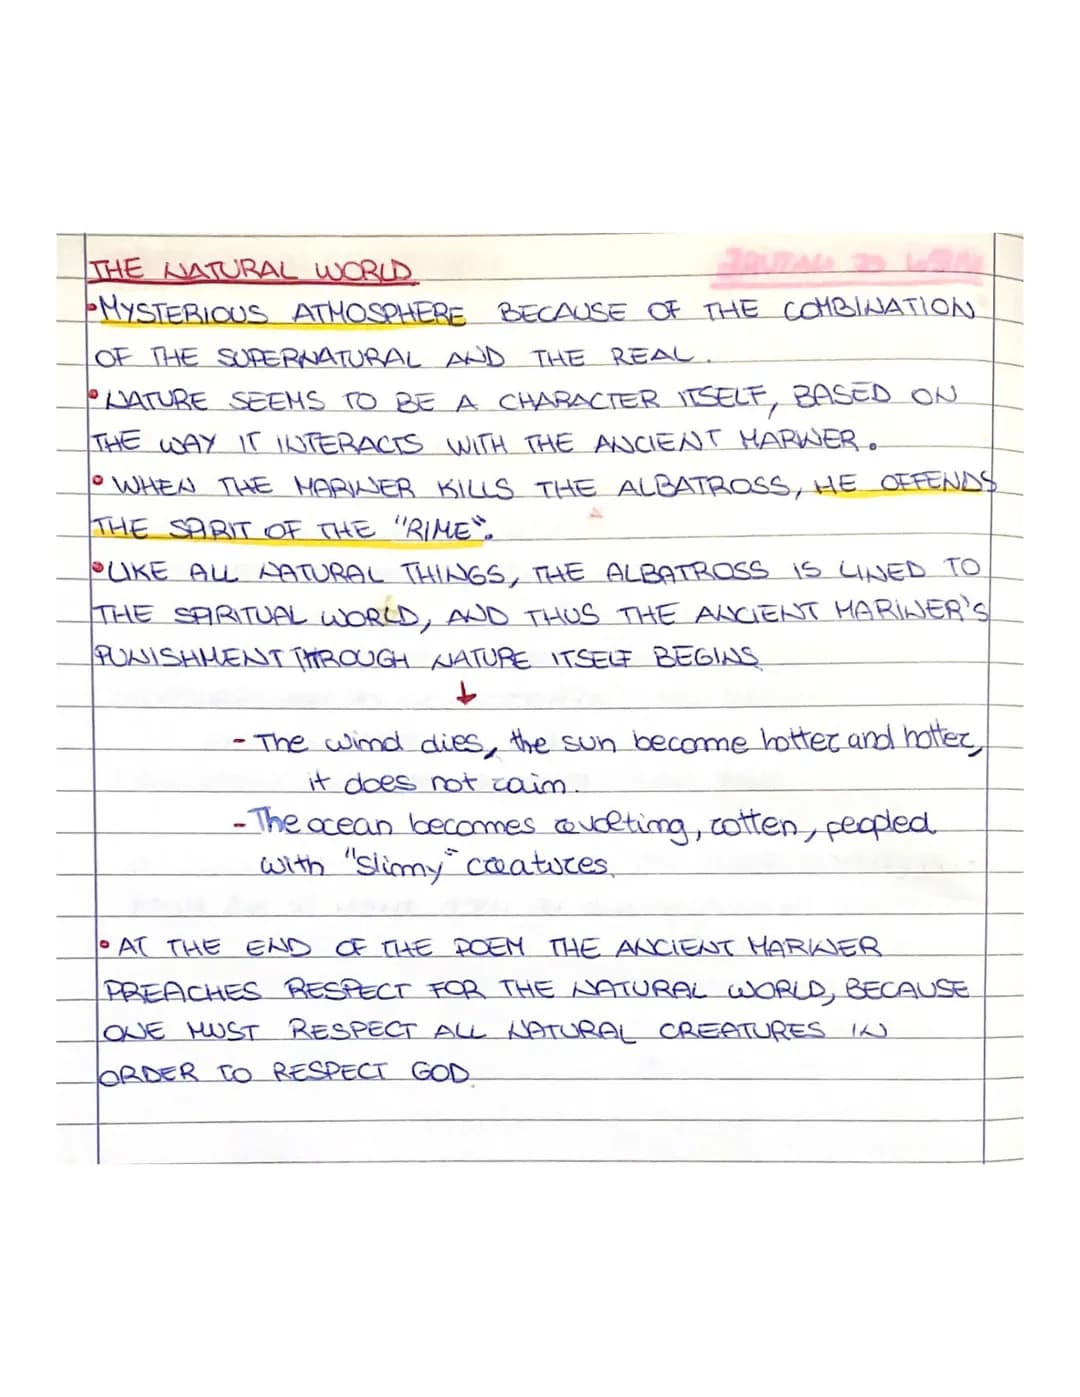 THE NATURAL WORLD
•MYSTERIOUS ATMOSPHERE BECAUSE OF THE COMBINATION
OF THE SUPERNATURAL AND THE REAL.
•NATURE SEEMS TO BE A CHARACTER ITSELF, BASED ON
THE WAY IT INTERACTS WITH THE ANCIENT MARINER.
•WHEN THE MARINER KILLS THE ALBATROSS, HE OFFENDS
THE SPIRIT OF THE "RIME".
•LIKE ALL NATURAL THINGS, THE ALBATROSS IS LINED TO
THE SPIRITUAL WORLD, AND THUS THE ANCIENT MARINER'S
PUNISHMENT THROUGH NATURE ITSELF BEGINS
↓
- The wind dies, the sun become hotter and hotter,
it does not rain.
- The ocean becomes revolting, rotten, peopled
with "slimy" creatures.
•AT THE END OF THE POEM THE ANCIENT MARINER
PREACHES RESPECT FOR THE NATURAL WORLD, BECAUSE
ONE MUST RESPECT ALL NATURAL CREATURES IN
ORDER TO RESPECT GOD.